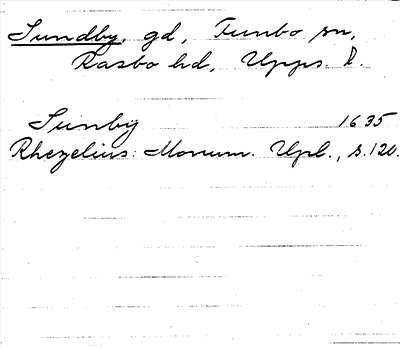 Sundby, gd, Funbo sn,
Rasbo hd, Upps. l.
Sunby 1635
Rhezelius: Monum. Upl., s. 120.